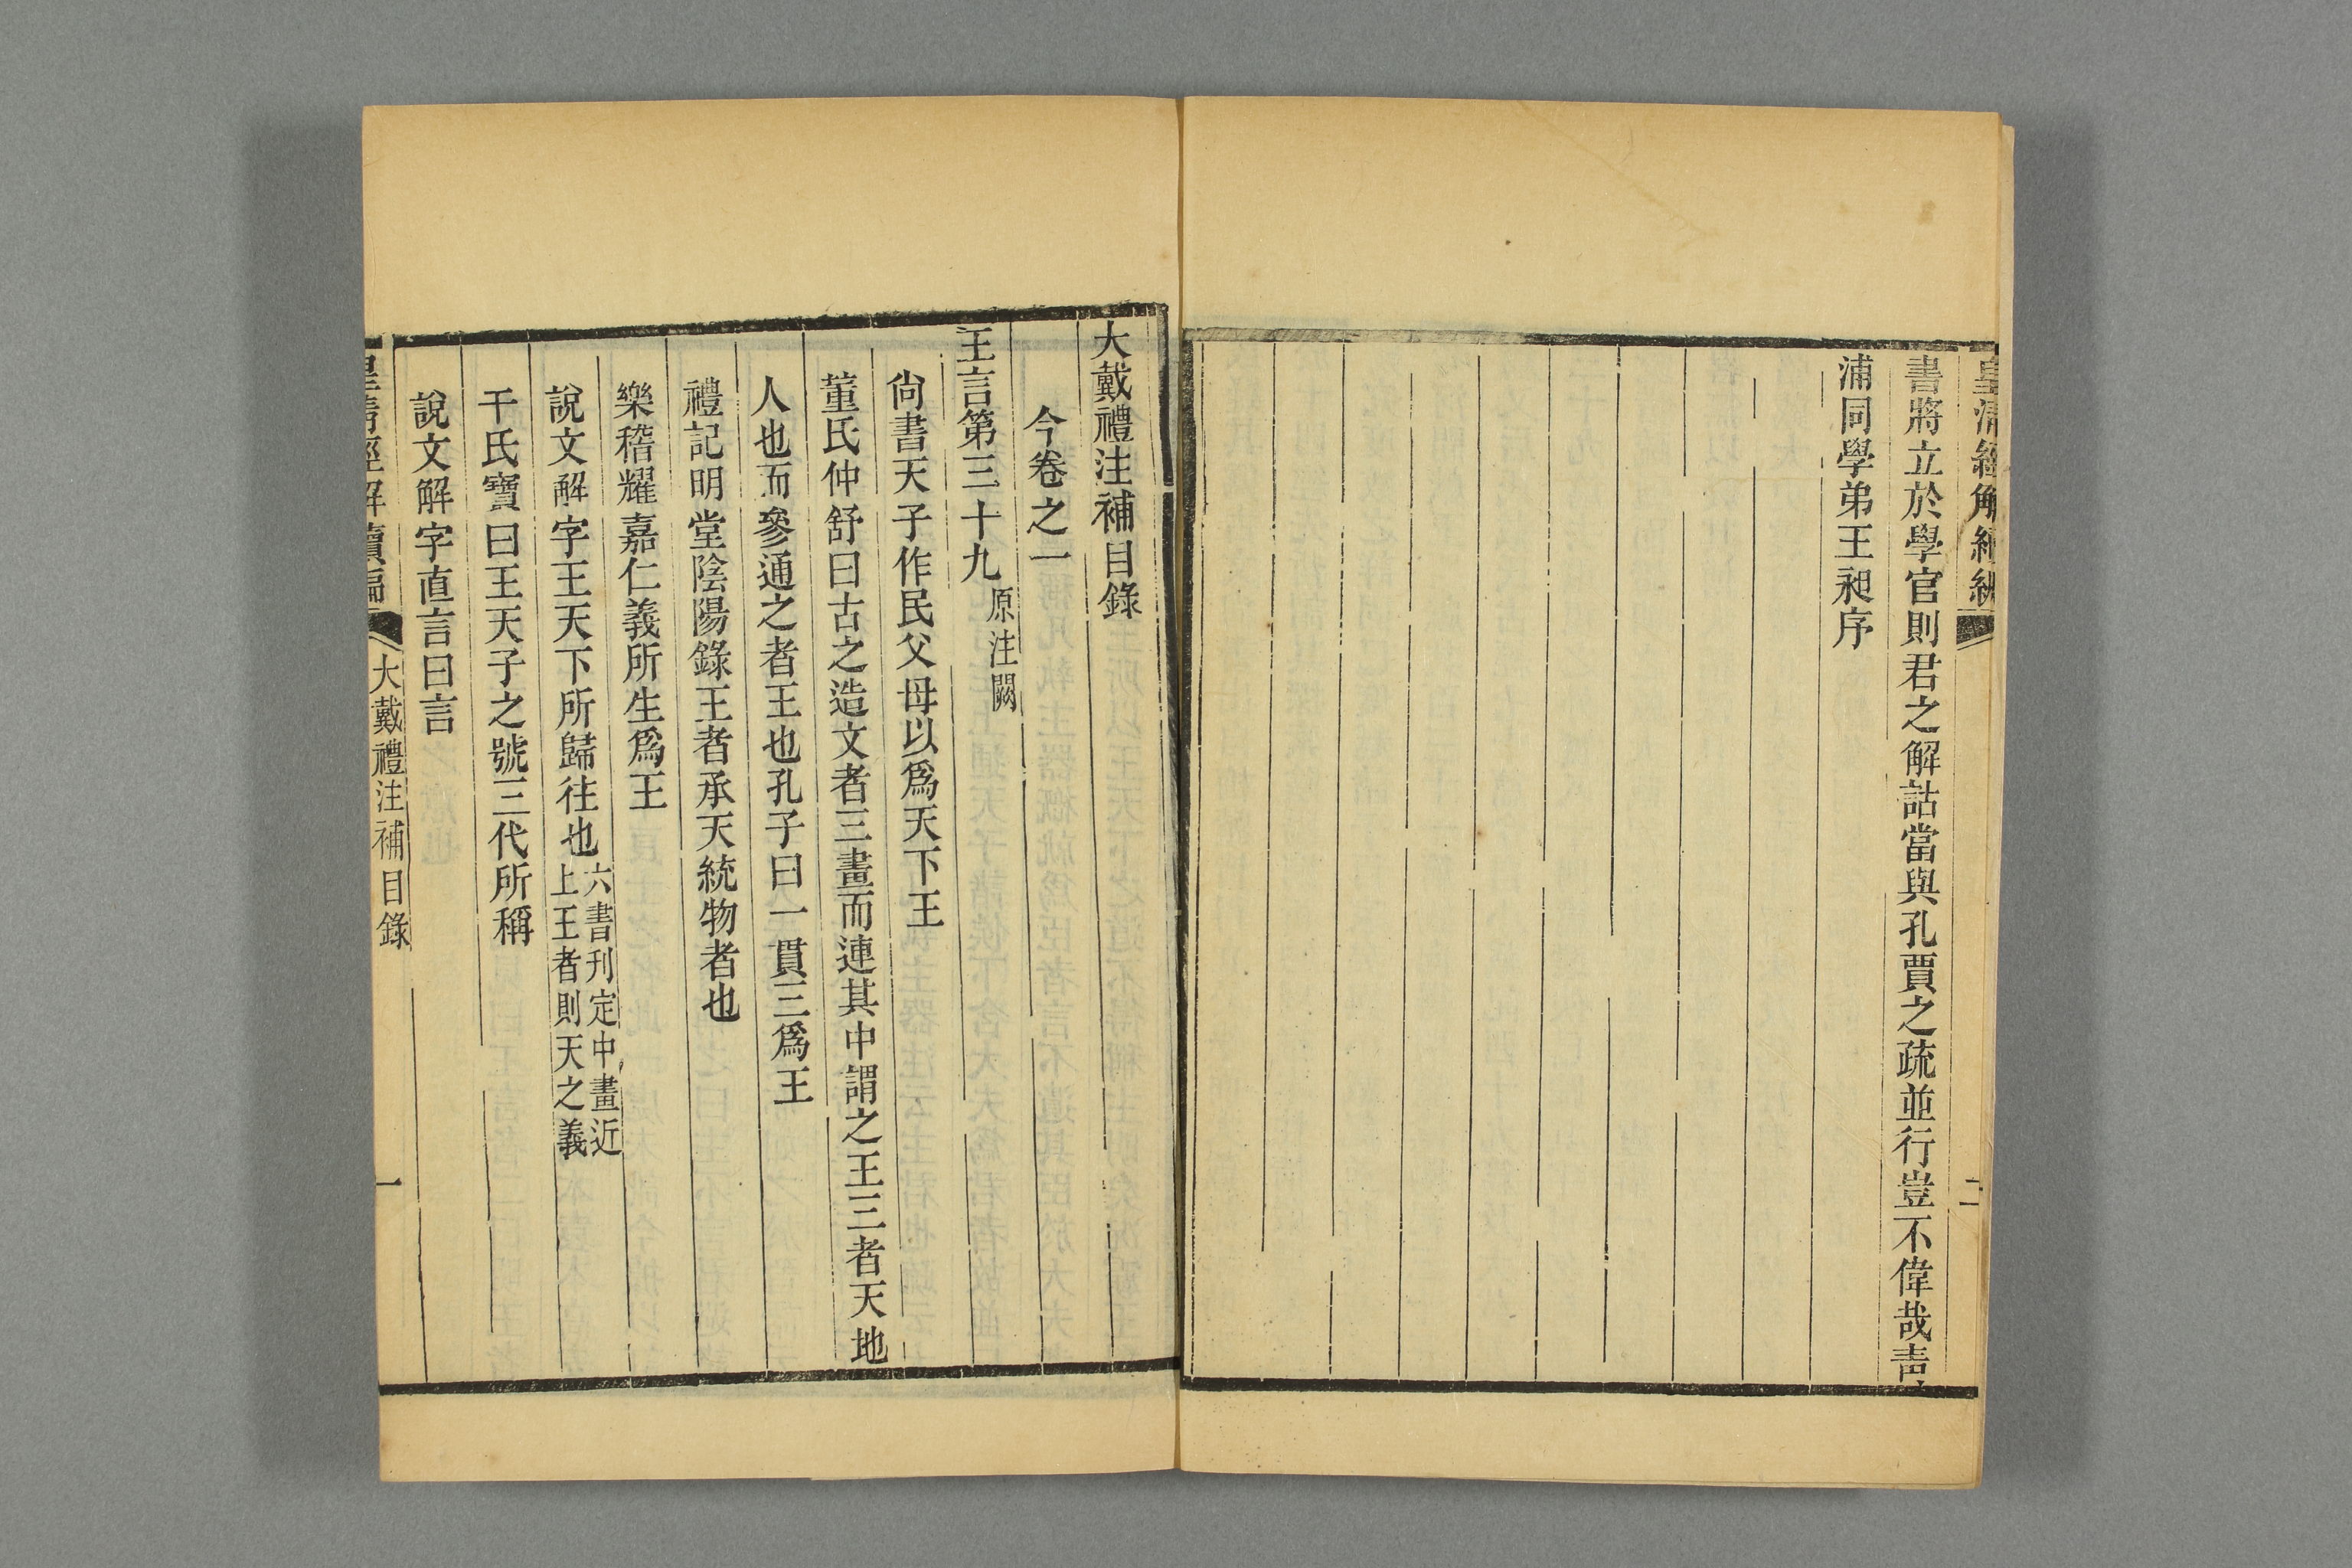 皇清經解續編
二
書將立於學官則君之解詁當與孔賈之疏並行豈不偉哉靑
浦同學弟王昶序
大戴禮注補目錄
今卷之一
王言第三十九原注闕
尙書天子作民父母以爲天下王
董氏仲舒曰古之造文者三畫而連其中謂之王三者天地
人也而參通之者王也孔子曰一貫三爲王
禮記明堂陰陽錄王者承天統物者也
樂稽耀嘉仁義所生爲王
說文解字王天下所歸往也
六書刊定中畫近
上王者則天之義
干氏寶曰王天子之號三代所稱
說文解字直言曰言
皇淸經解續編
大戴禮注補目錄
一